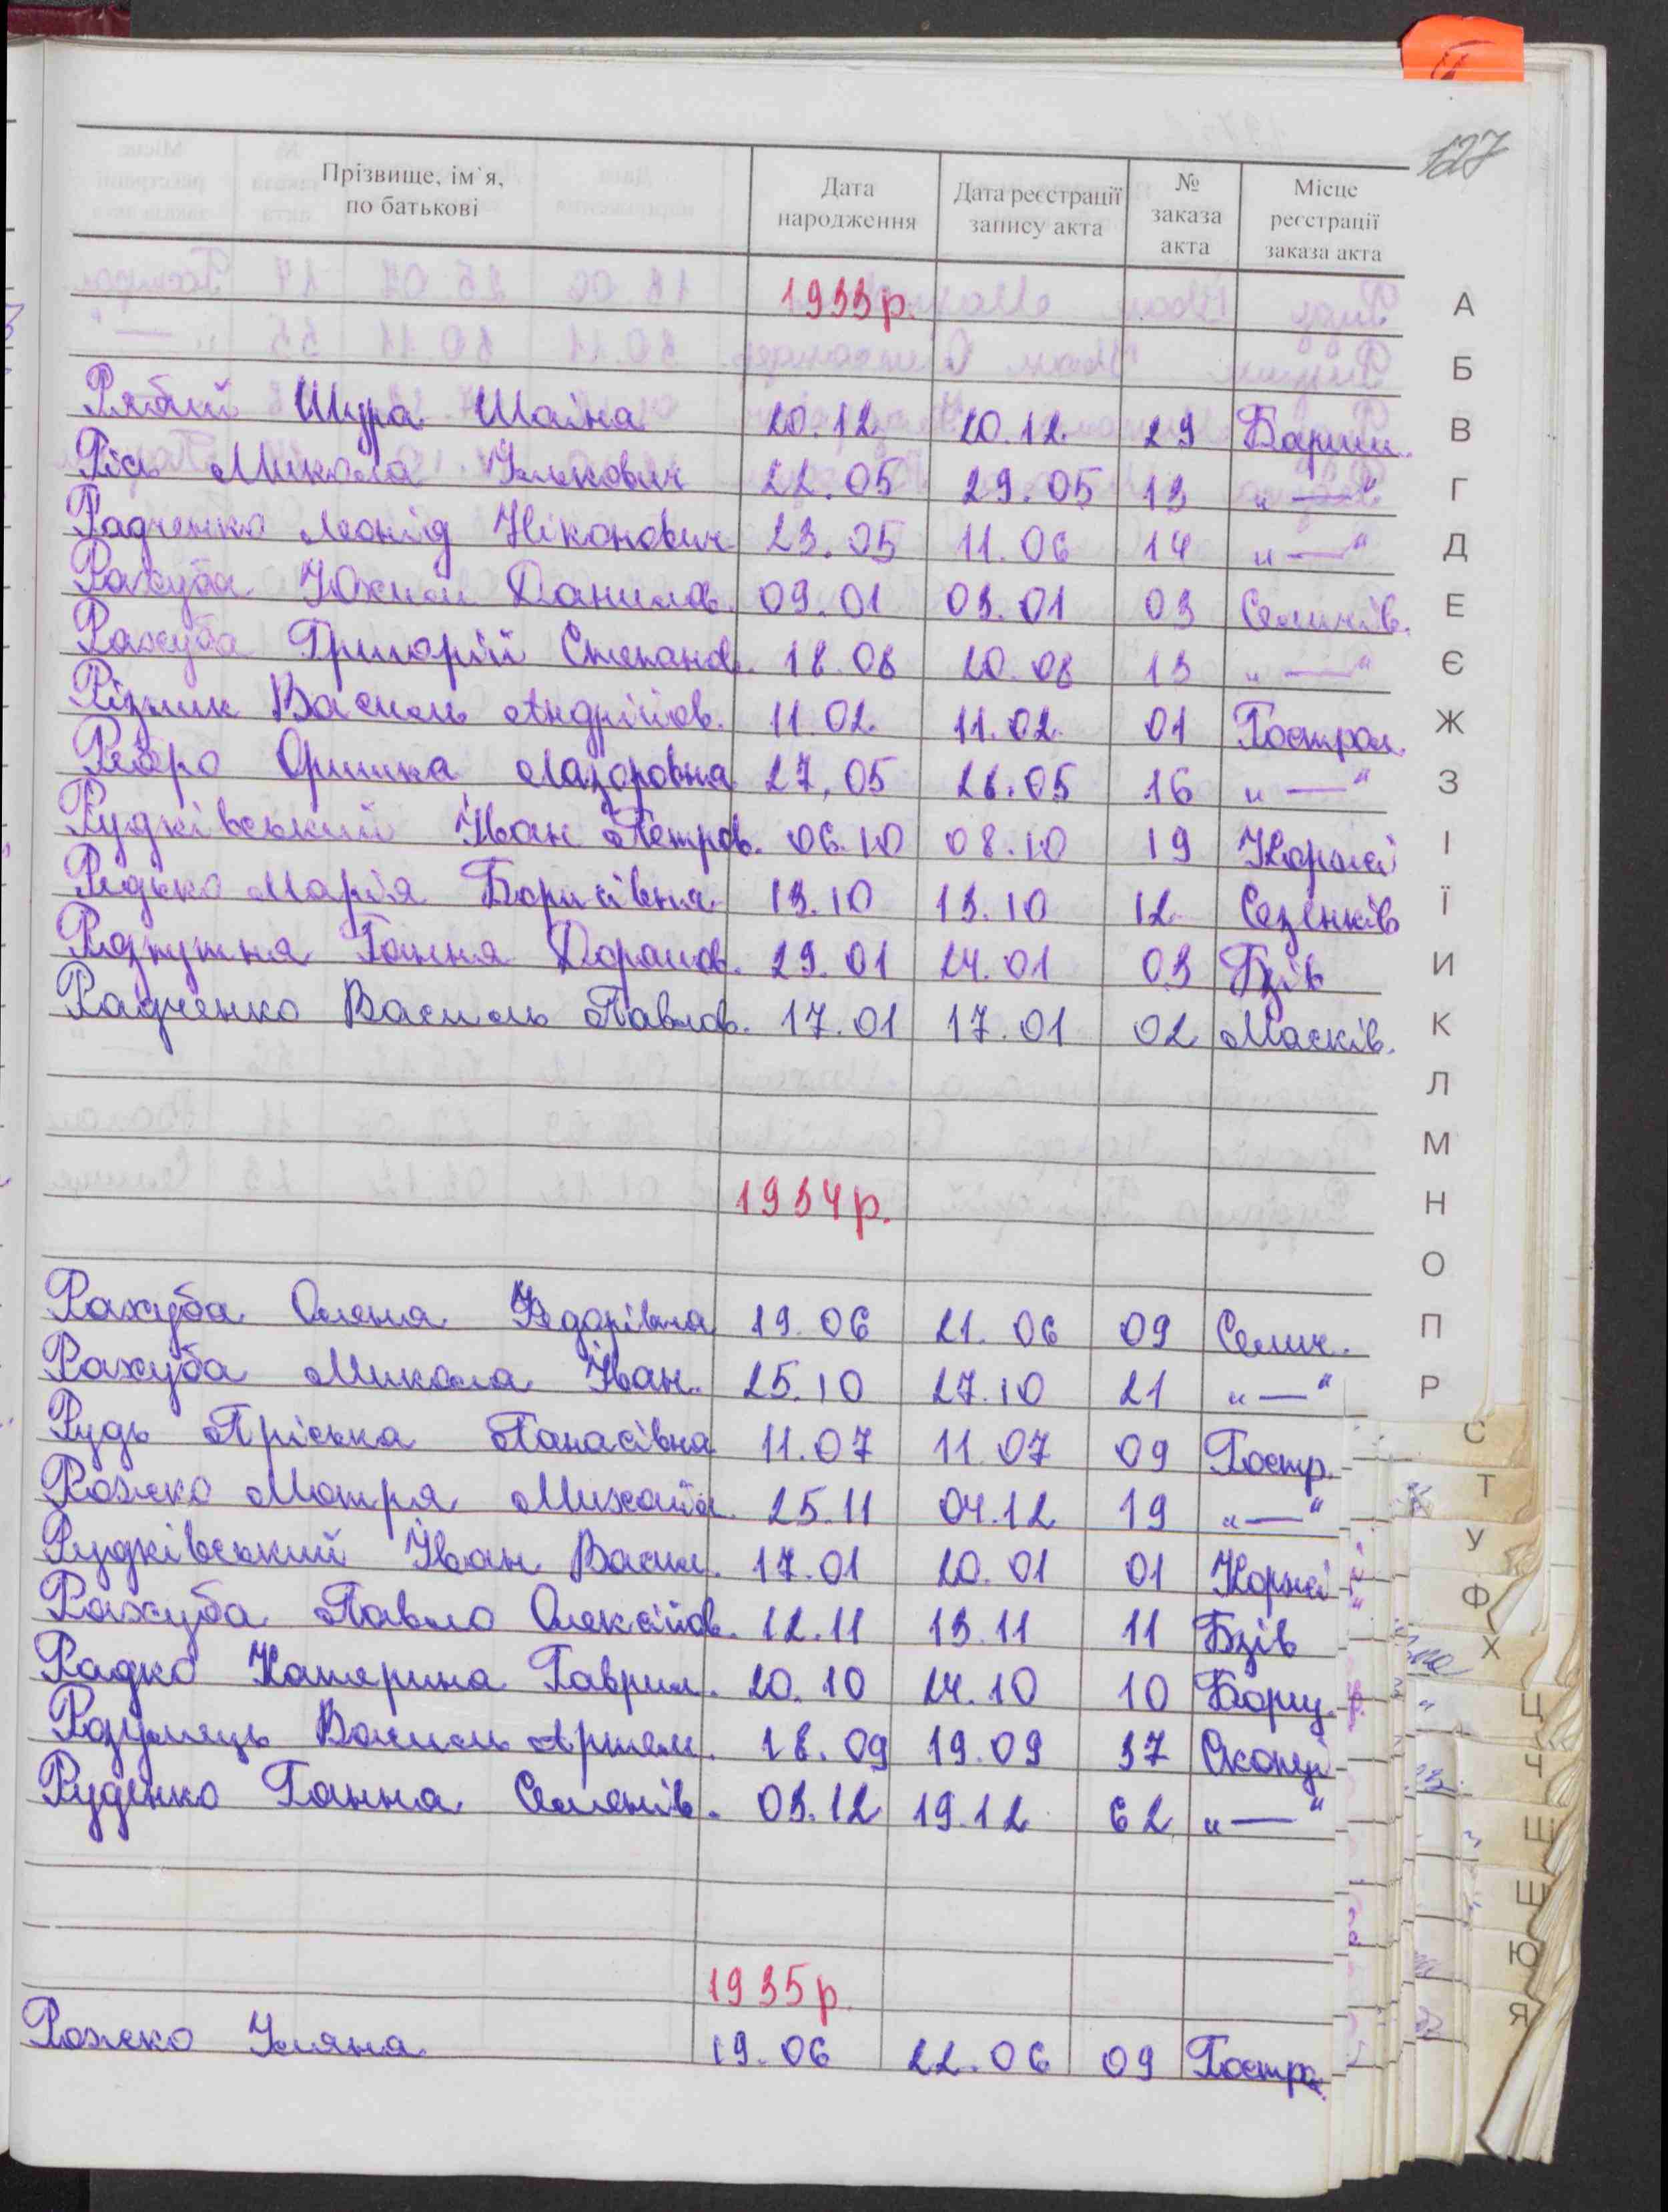 127
Прізвище, ім'я, по батькові | Дата народження | Дата реєстрації запису акта | № заказа акта | Місце реєстрації заказа акта
1933р.
Рябий Шура Шаіна 20.12 20.12. 29 Бариш.
Рісь Микола Ількович 22.05 29.05 13 „—“
Радченко Леонід Ніконович 23.05 11.06 14 „—“
Рахуба Юхим Данилов. 09.01 09.01 03 Селичів.
Рахуба Григорій Степанов. 18.08 20.08 13 „—“
Різник Василь Андрійов. 11.02. 11.02. 01 Гострол.
Ребро Оришка Лазоровна 27.05 28.05 16 „—“
Рудківський Іван Петров. 06.10 08.10 19 Корнієї
Редько Марія Борисівна 13.10 13.10 12 Сезенків
Розпутня Ганна Доромов. 23.01 24.01 03 Бзів
Радченко Василь Павлов. 17.01 17.01 02 Масків.
1934р.
Рахуба Олена Федорівна 19.06 21.06 09 Селич.
Рахуба Микола Іван. 25.10 27.10 21 „—“
Рудь Пріська Панасівна 11.07 11.07 09 Гостр.
Рожко Мотря Михайл. 25.11 04.12 19 „—“
Рудківський Іван Васил. 17.01 20.01 01 Корнєї
Рахуба Павло Олексійов. 12.11 13.11 11 Бзів
Радко Катерина Гаврил. 20.10 24.10 10 Борщ.
Розумець Василь Артем. 18.09 19.09 37 Скопці
Руденко Ганна Семенів. 03.12 19.12 62 „—“
1935р.
Рожко Уляна 19.06 22.06 09 Гостро.
А
Б
В
Г
Д
Е
Є
Ж
З
І
Ї
И
К
Л
М
Н
О
П
Р
С
Т
У
Ф
Х
Ц
Ч
Ш
Щ
Ю
Я